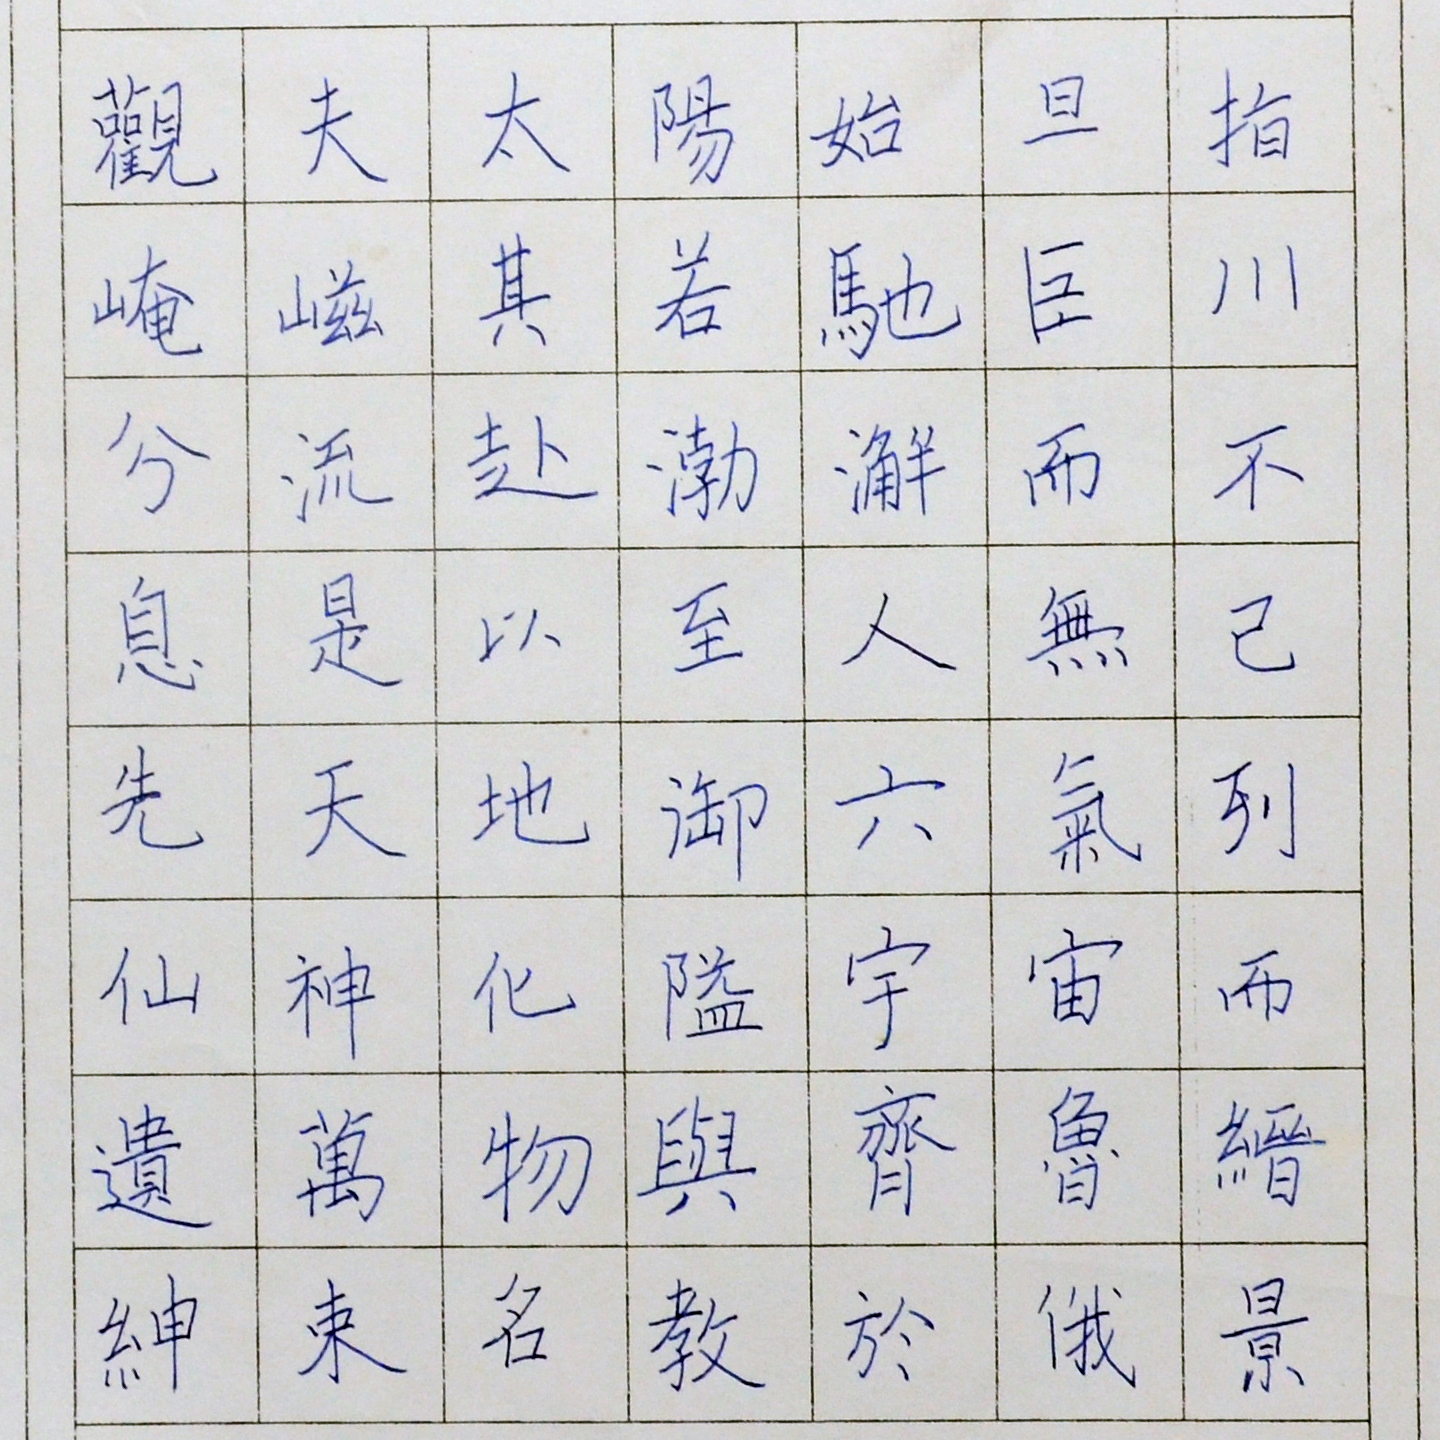 觀夫太陽始旦指
崦嵫其若馳巨川
兮流赴渤澥而不
息是以至人無己
先天地御六氣列
仙神化隘宇宙而
遺萬物與齊魯縉
紳束名教於俄景